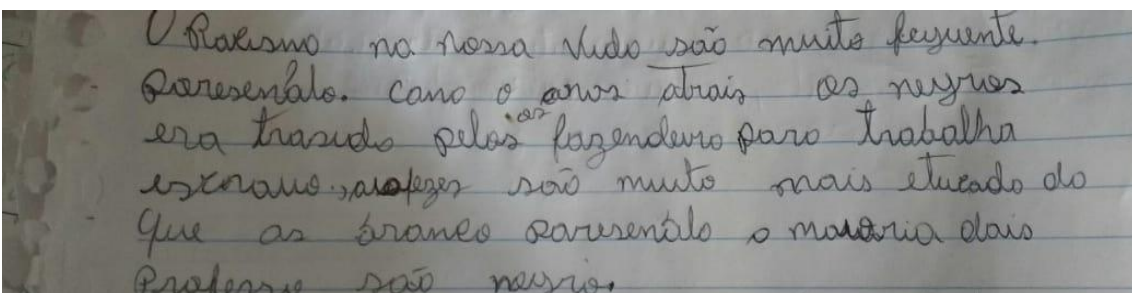 O Racismo na nossa vida são muito fequente.
Por esenplo. cano o anos atrais os negros
era trasido pelos as fazendeiro para trabalha
escravo, as fezes são muito mais etucado do
que as branco por esenplo a maioria dais
Professe são negro.